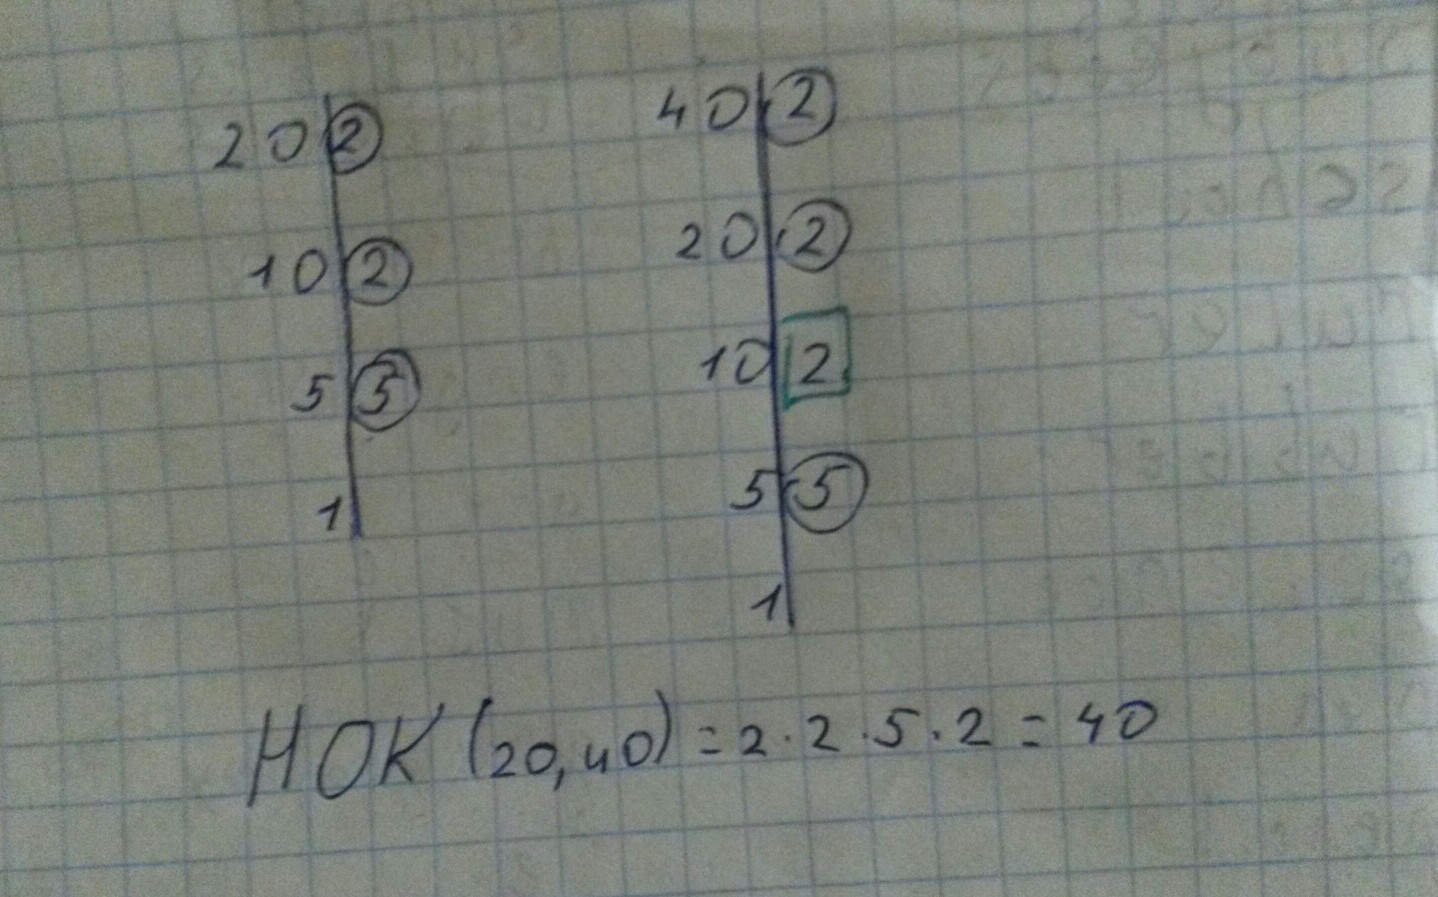 20 2 40 2
10 2 20 2
5 5 10 2
1 5 5
1
НОК (20, 40) = 2 · 2 · 5 · 2 = 40